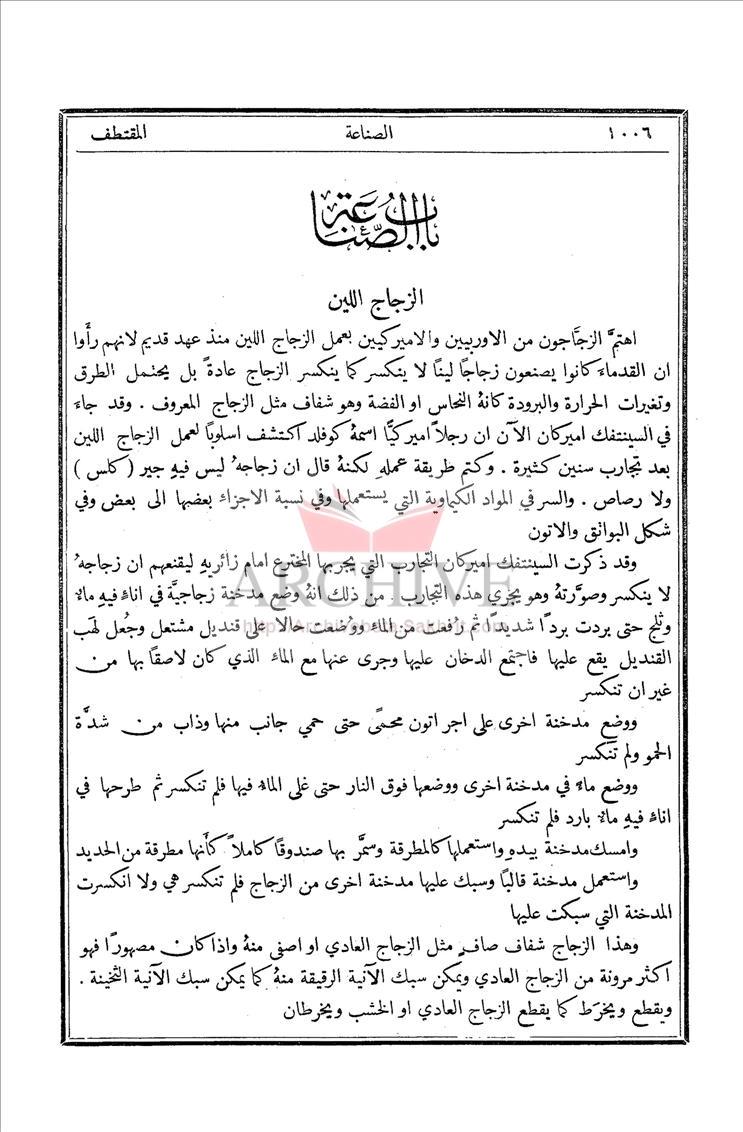 ١٠٠٦ الصناعة المقتطف
باب الصناعة
الزجاج اللين
اهتمَّ الزجَّاجون من الاوربيين والاميركيين بعمل الزجاج اللين منذ عهد قديم لانهم رأَوا
ان القدماءَ كانوا يصنعون زجاجًا لينًا لا ينكسر كما ينكسر الزجاج عادةً بل يحتمل الطرق
وتغيرات الحرارة والبرودة كانهُ النحاس او الفضة وهو شفاف مثل الزجاج المعروف . وقد جاءَ
في السينتفك اميركان الآن ان رجلاً اميركيًّا اسمهُ كوفلد اكتشف اسلوبًا لعمل الزجاج اللين
بعد تجارب سنين كثيرة . وكتم طريقة عملهِ لكنهُ قال ان زجاجهُ ليس فيهِ جير ( كلس )
ولا رصاص . والسر في المواد الكيماوية التي يستعملها وفي نسبة الاجزاء بعضها الى بعض وفي
شكل البواتق والاتون
وقد ذكرت السينتفك اميركان التجارب التي يجربها المخترع امام زائريهِ ليقنعهم ان زجاجهُ
لا ينكسر وصوَّرتهُ وهو يجري هذه التجارب . من ذلك انهُ وضع مدخنة زجاجيَّة في اناءٍ فيهِ ماءٌ
وثلج حتى بردت بردًا شديدًا ثم رُفعت من الماءِ ووُضعت حالاً على قنديل مشتعل وجُعل لهَب
القنديل يقع عليها فاجتمع الدخان عليها وجرى عنها مع الماءِ الذي كان لاصقًا بها من
غير ان تنكسر
ووضع مدخنة اخرى على اجر اتون محمىً حتى حمي جانب منها وذاب من شدَّة
الحمو ولم تنكسر
ووضع ماءً في مدخنة اخرى ووضعها فوق النار حتى غلى الماءُ فيها فلم تنكسر ثم طرحها في
اناءٍ فيهِ ماءٌ بارد فلم تنكسر
وامسك مدخنة بيدهِ واستعملها كالمطرقة وسمَّر بها صندوقًا كاملاً كأَنها مطرقة من الحديد
واستعمل مدخنة قالبًا وسبك عليها مدخنة اخرى من الزجاج فلم تنكسر هي ولا انكسرت
المدخنة التي سبكت عليها
وهذا الزجاج شفاف صافٍ مثل الزجاج العادي او اصفى منهُ واذا كان مصهورًا فهو
اكثر مرونة من الزجاج العادي ويمكن سبك الآنية الرقيقة منهُ كما يمكن سبك الآنية الثخينة .
ويقطع ويخرَط كما يقطع الزجاج العادي او الخشب ويخرطان
ARCHIVE
http://Archivebeta.Sakhrit.com